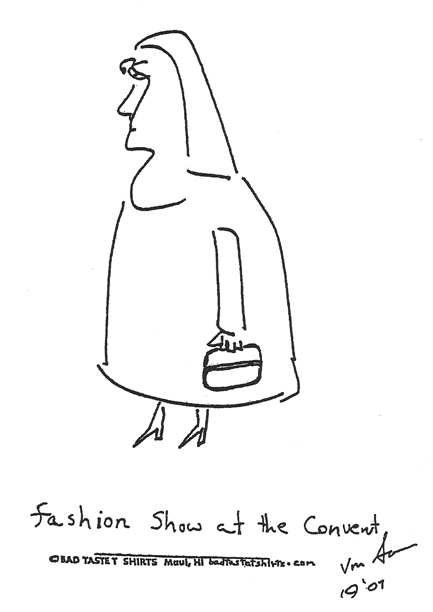 fashion Show at the Convent
©BAD TASTE T SHIRTS Maui, HI badtastetshirts.com
'07